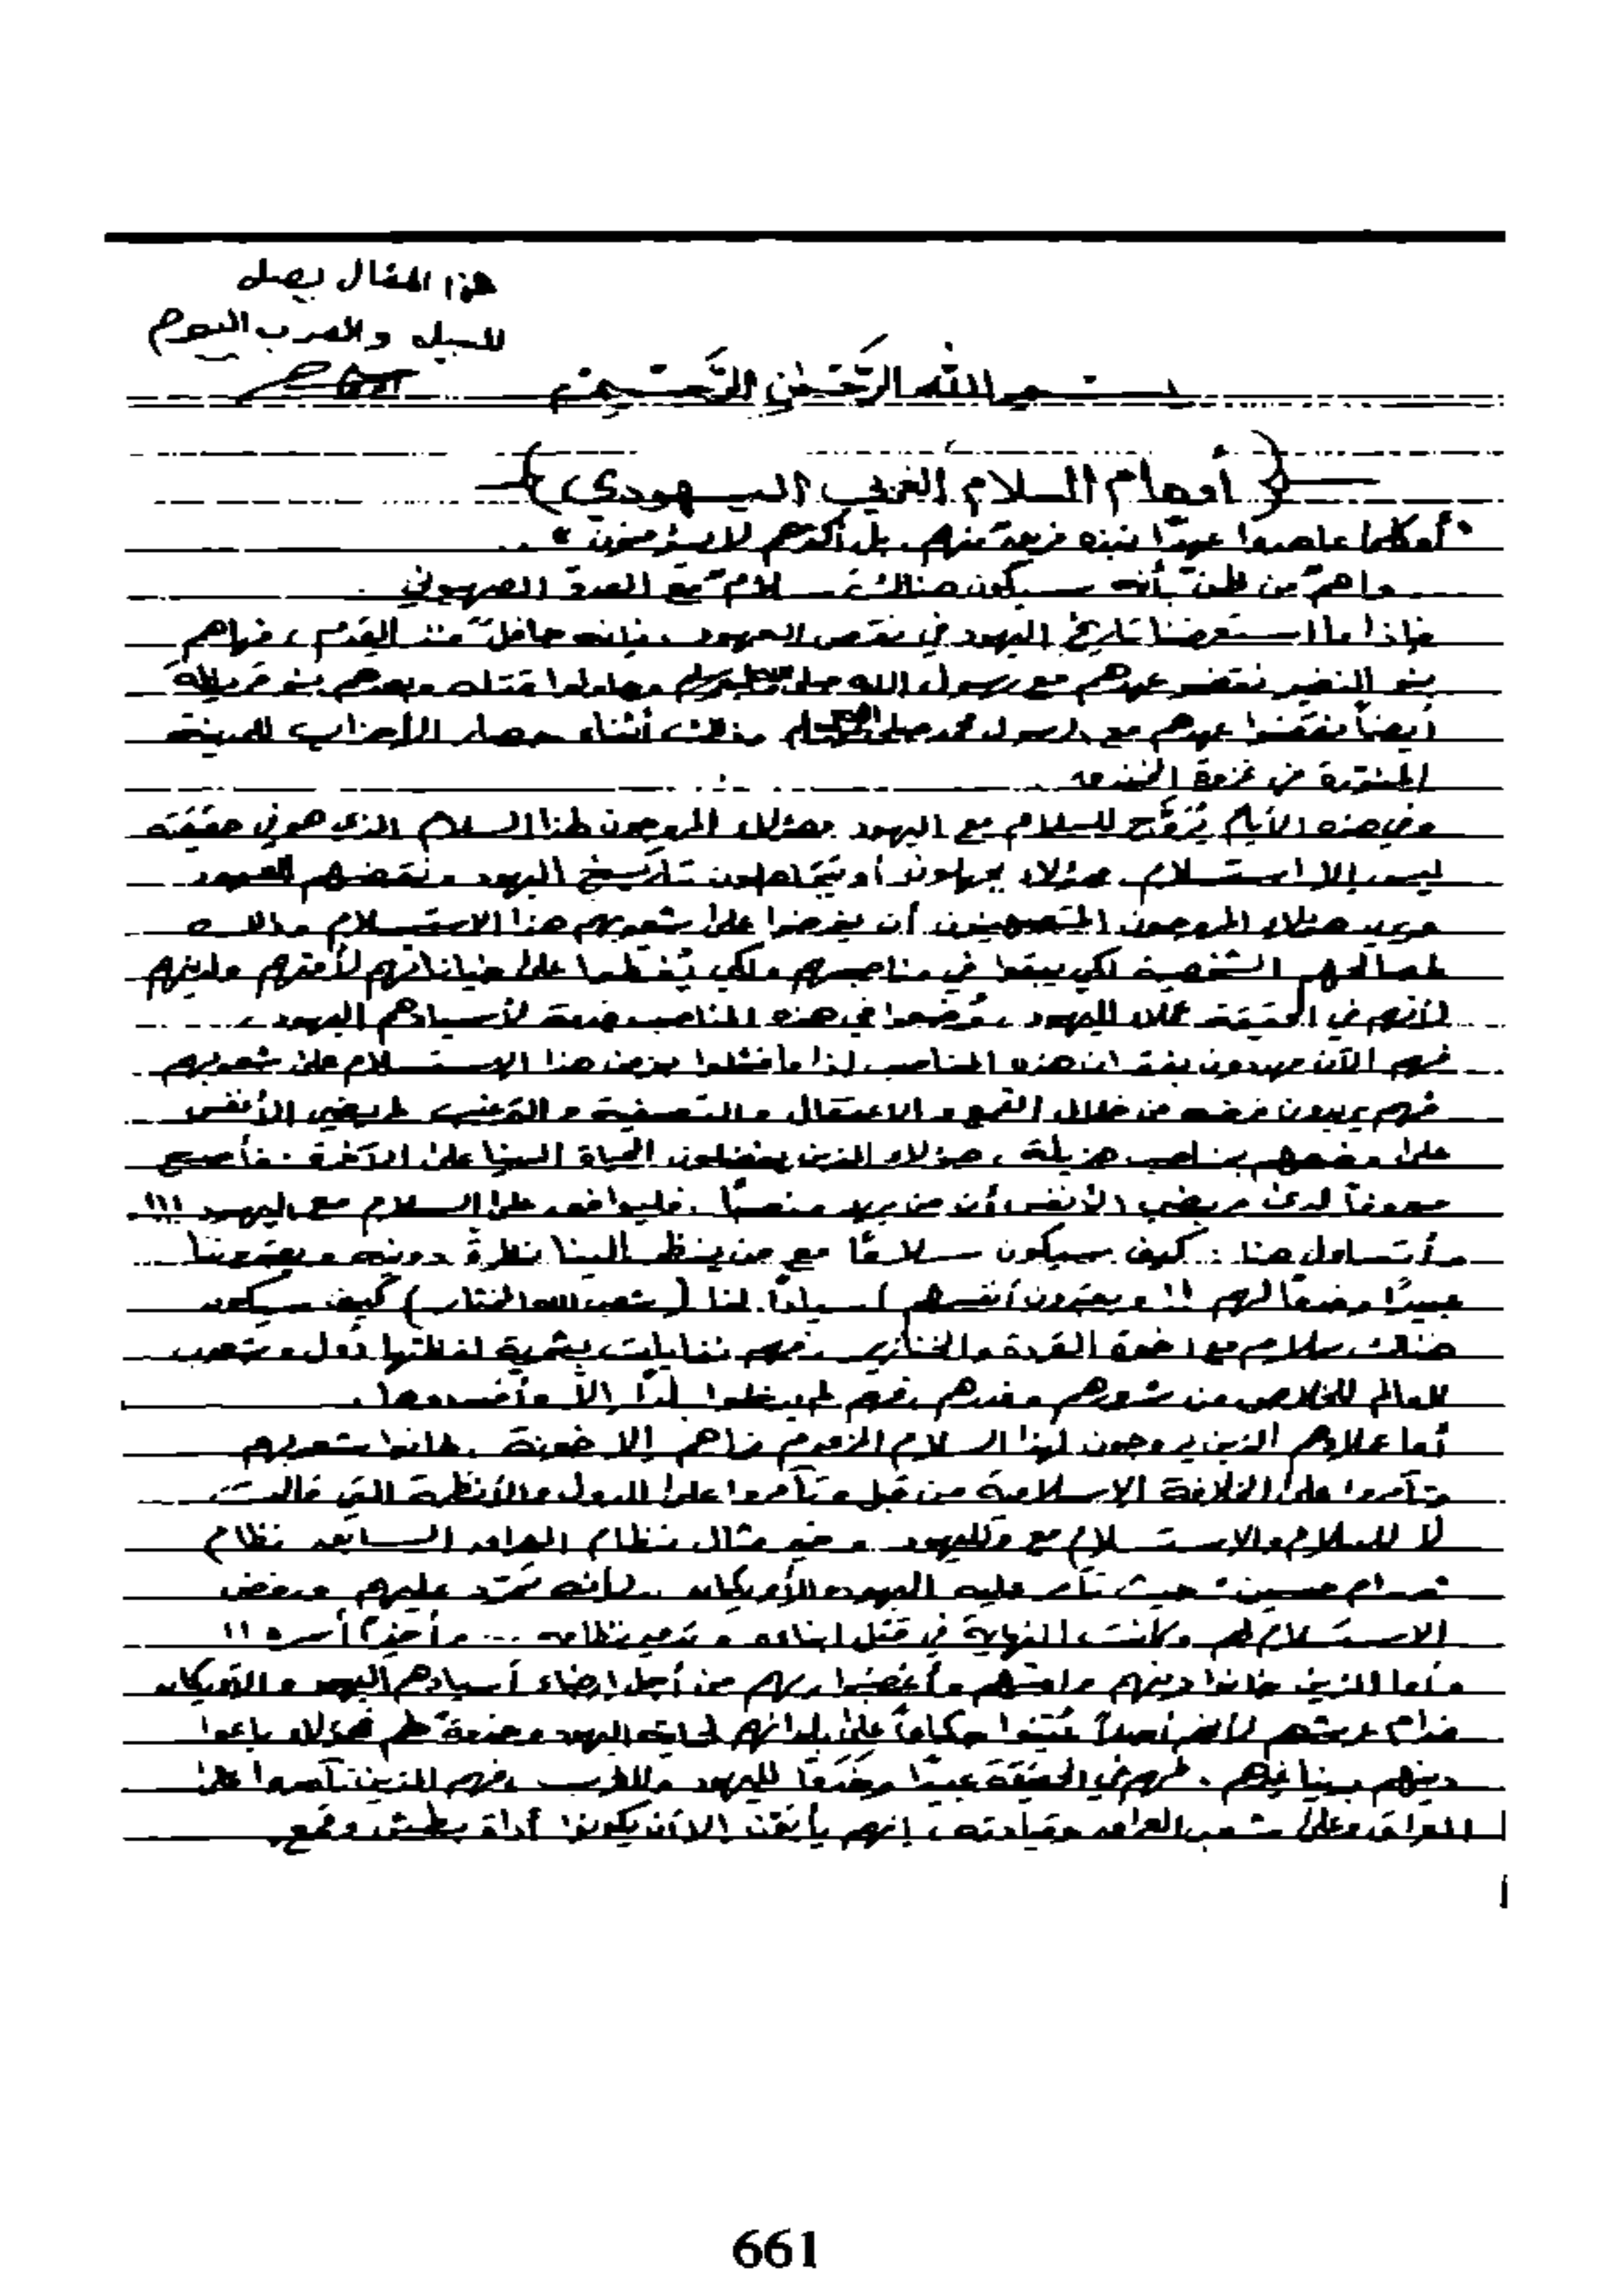 هذا المقال يصل
للسبيل والعرب اليوم
بسم الله الرحمن الرحيم
{أوهام السلام العربي اليهودي}
"أوكلما عاهدوا عهدًا نبذه فريق منهم بل أكثرهم لا يؤمنون" ..
واهمٌ من ظنّ بأنه سيكون هنالك سلامٌ مع العدو الصهيوني .
فإذا ما استعرضنا تاريخ اليهود في نقض العهود ، فإنه حافلٌ منذ القدم ، فهاهم
بنو النضير نقضوا عهدهم مع رسول الله صلى الله عليه وسلم وحاولوا قتله وبعدهم بنو قريظة
أيضاً نقضوا عهدهم مع الرسول محمد صلى الله عليه وسلم وذلك أثناء حصار الأحزاب للمدينة
المنورة في غزوة الخندق
وفي هذه الأيام يُرَوَّج للسلام مع اليهود وهؤلاء المروجون لهذا السلام الذي هو في حقيقته
ليس إلا استسلام هؤلاء يجهلون أو يتجاهلون تاريخ اليهود ونقضهم العهود
ويريد هؤلاء المروجون المتصهينون أن يفرضوا على شعوبهم هذا الاستسلام وذلك
لمصالحهم الشخصية لكي يبقوا في مناصبهم ولكي يُغطوا على خياناتهم لأمتهم ولدينهم
لأنهم في الحقيقة عملاء لليهود ، وُضعوا في هذه المناصب خدمة لأسيادهم اليهود ،
فهم الآن مهددون بفقدان هذه المناصب إذا ما فشلوا بفرض هذا الاستسلام على شعوبهم
فهم يريدون فرضه من خلال القمع والاعتقال والتصفية والترغيب لمريضي الأنفس
على وضعهم بمناصب هزيلة ، هؤلاء الذين يفضلون الحياة الدنيا على الآخرة . فأصبح
معروفاً لدى مريضي الأنفس أن من يريد منصبًا . فليوافق على السلام مع اليهود !!!
وأتساءل هنا : كيف سيكون سلامًا مع من ينظر إلينا نظرةً دونية ويعتبروننا
عبيدًا وخدمًا لهم !! ويعتبرون أنفسهم أسياداً لنا (شعب الله المختار) كيف سيكون
هنالك سلام مع اخوة القردة والخنازير فهم نفايات بشرية لفظتها دول وشعوب
العالم للخلاص من شرورهم وغدرهم ، فهم لم يدخلوا بلدًا إلاّ وأفسدوها .
أما عملاؤهم الذين يروجون لهذا السلام المزعوم فما هم إلا خونة . خانوا شعوبهم
وتآمروا على الخلافة الاسلامية من قبل وتآمروا على الدول والأنظمة التي قالت
لا للسلام والاستسلام مع ولليهود وخير مثال نظام العراق السابق نظام
صدام حسين : حيث تآمر عليه اليهود والأمريكان .. لأنه تمرّد عليهم ورفض
الاستسلام لهم وكانت النهاية في قتل ابناءه وتدمير نظامه ... وأخيرًا أسره !!
وأما الذين خانوا دينهم وأمتهم وأغضبوا ربهم من أجل إرضاء أسيادهم اليهود والأمريكان
على بلدانهم لحماية اليهود وخدمةً لهم فهؤلاء باعوا
دينهم بدنياهم . فهم في الحقيقة عبيدًا وخدمًا لليهود وللغرب ، فهم الذين تآمروا على
العراق وعلى شعب العراق وقيادته ، إنهم يأبون إلا أن يكونوا أداة بطش وقمع
661